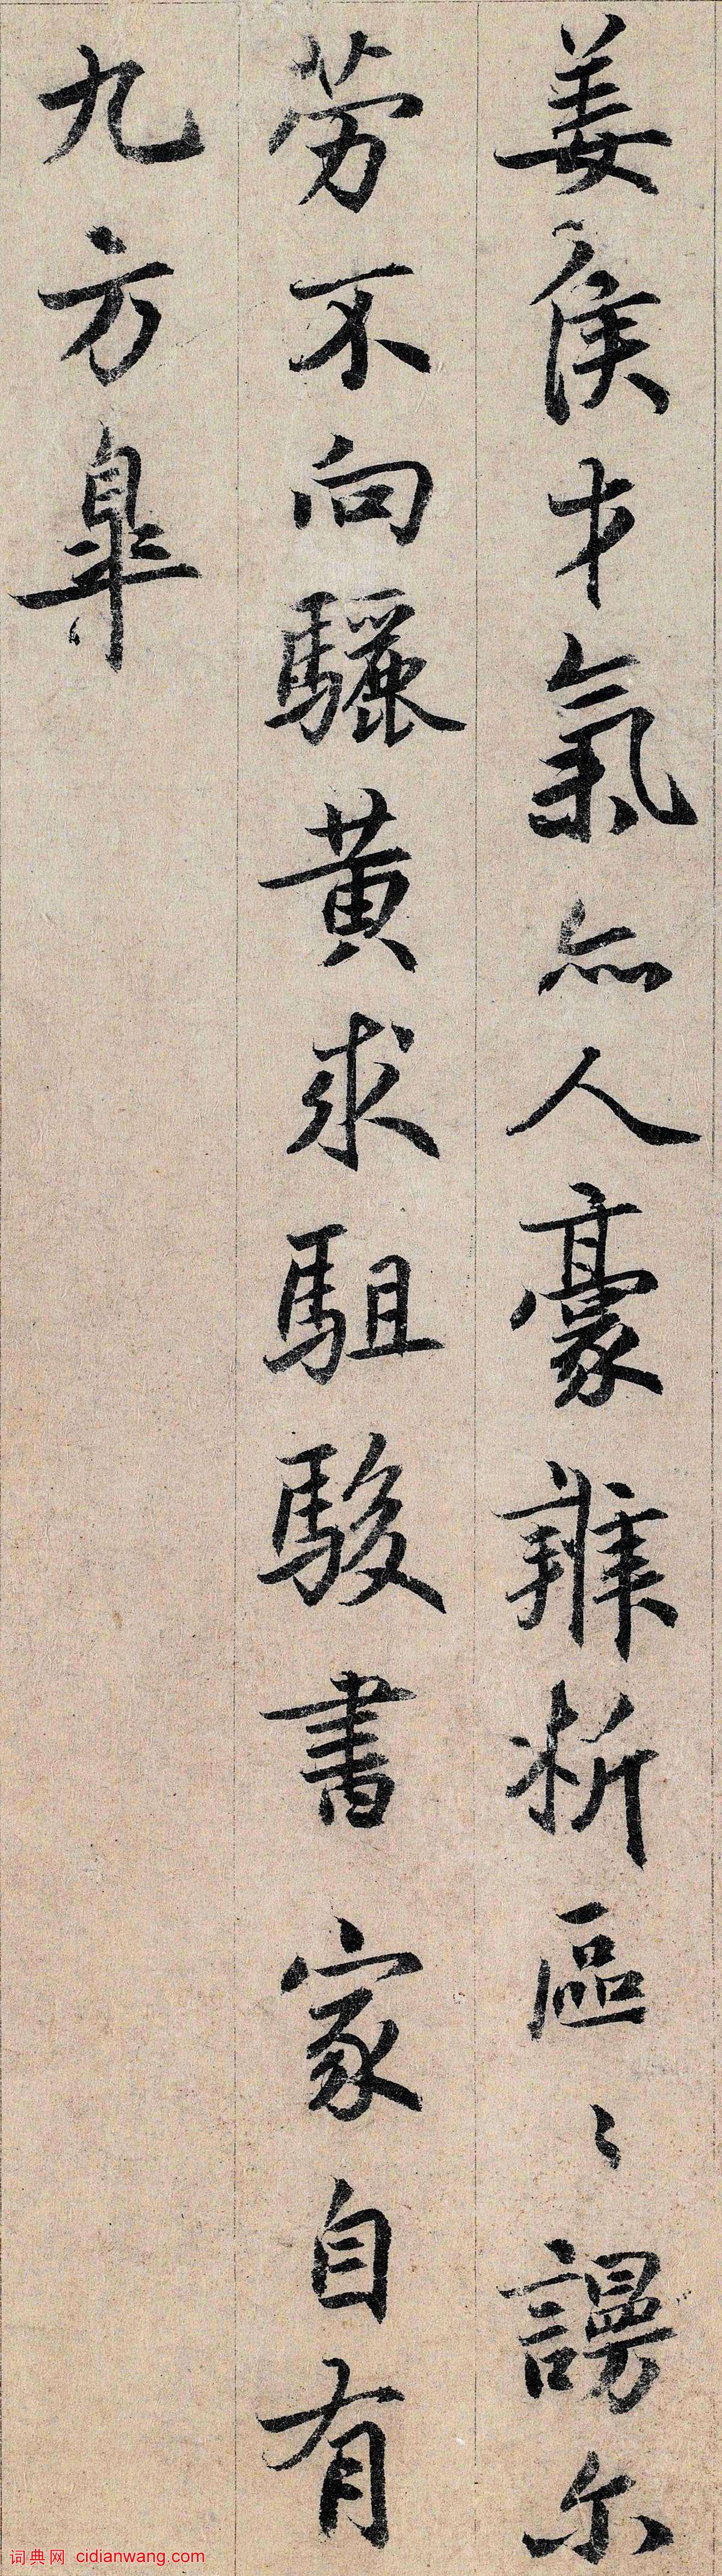 姜侯才氣亦人豪辨析區〻謾尔
勞不向驪黃求駔駿書家自有
九方皋
词典网 cidianwang.com